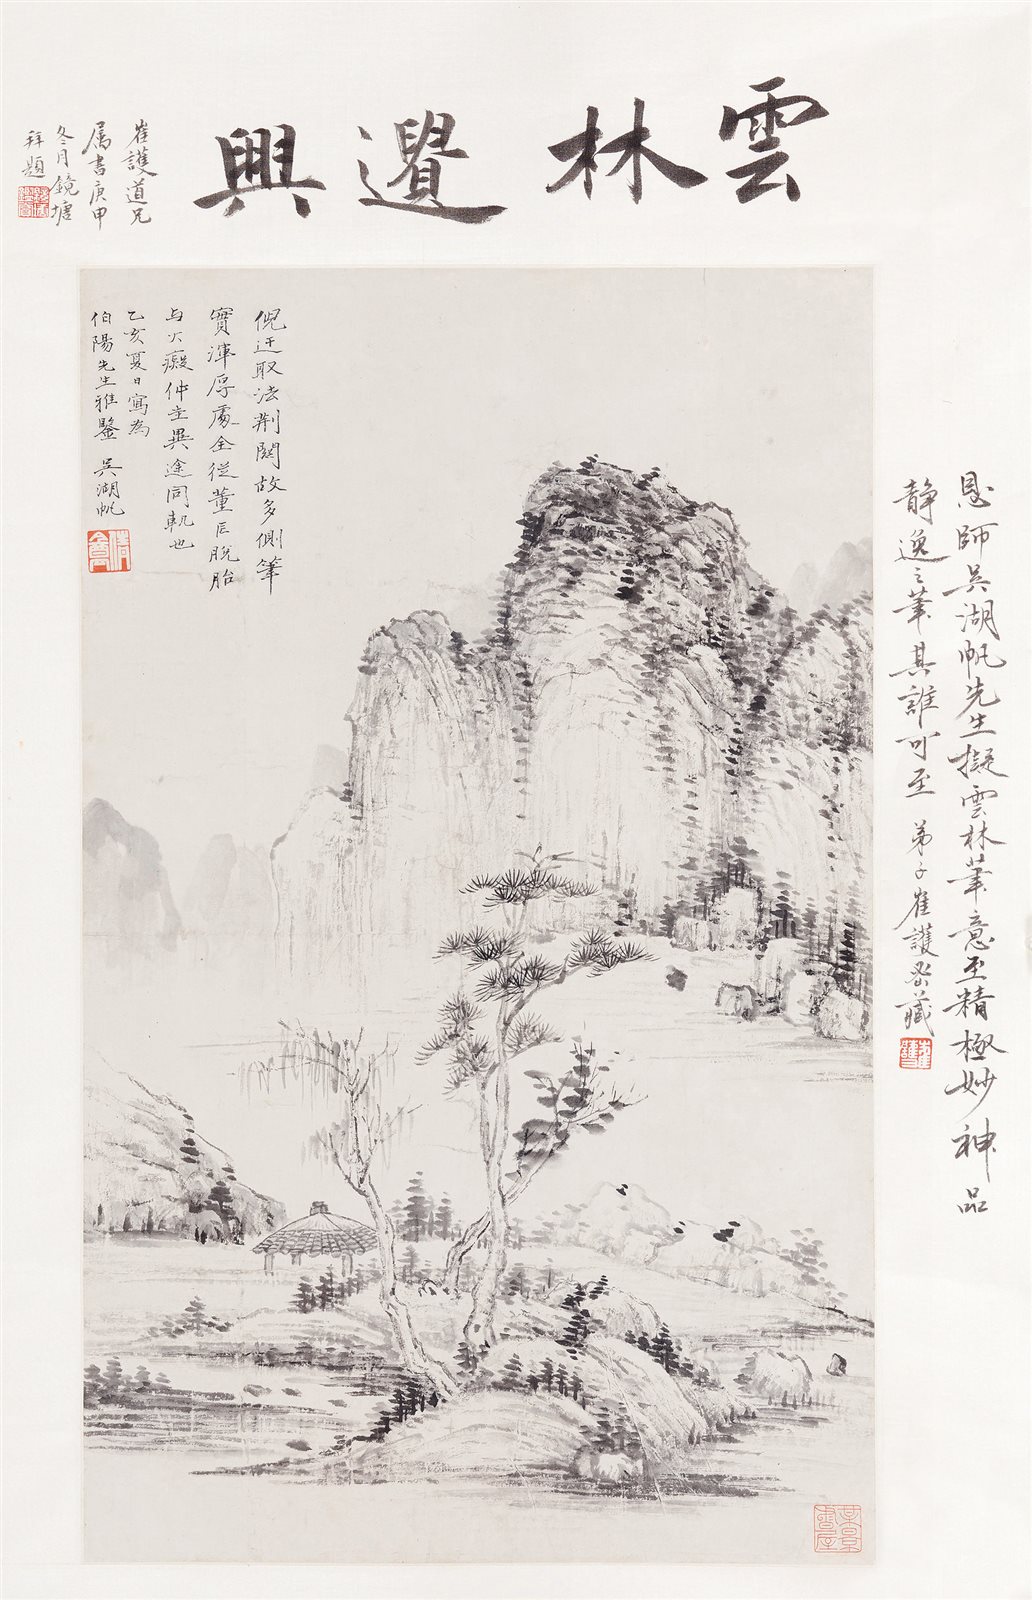 雲林遐興
崔護道兄
属書庚申
冬月鏡塘
拜題
倪迂取法荆関故多側筆
實渾厚處全從董巨脫胎
与大癡仲圭異途同軌也
乙亥夏日寫為
伯陽先生雅鑒 吳湖帆
恩師吳湖帆先生擬雲林筆意至精極妙神品
静逸之筆其誰可至 弟子崔護密藏